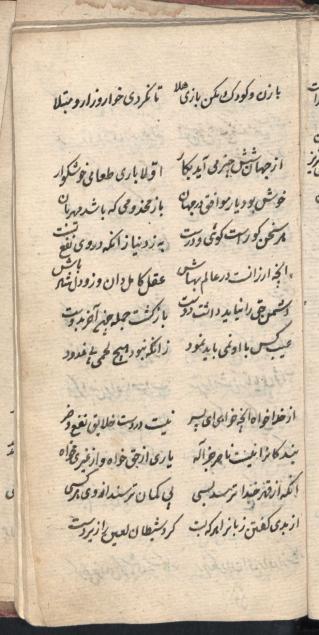 با زن و کودک مکن بازی هلا تا نگردی خوار و زار و مبتلا
از جهان شش چیز می آید بکار اولا باری طعامی خوشگوار
خوش بود یار موافق در جهان باز مخدومی که باشد مهربان
هر سخن کو راست گوئی و درست به ز دنیا زانکه در وی نفع تست
آنچه ارزانست در عالم بهاش عقل کامل دان و زو دل شاد باش
دشمن حق را نباید داشت دوست بازگشت جمله چون آخر بدوست
عیب کس با او نمی باید نمود زانکه نبود هیچ لحمی بی غدود
از خدا خواه آنچه خواهی ای پسر نیست در دست خلایق نفع و ضر
بندگانرا نیست ناصر جز اله یاری از حق خواه و از غیری مخواه
آنکه از قهر خدا ترسد بسی بی گمان ترسند از وی هر کسی
از بدی گفتن زبانرا هر که بست کرد شیطان لعین را زیر دست